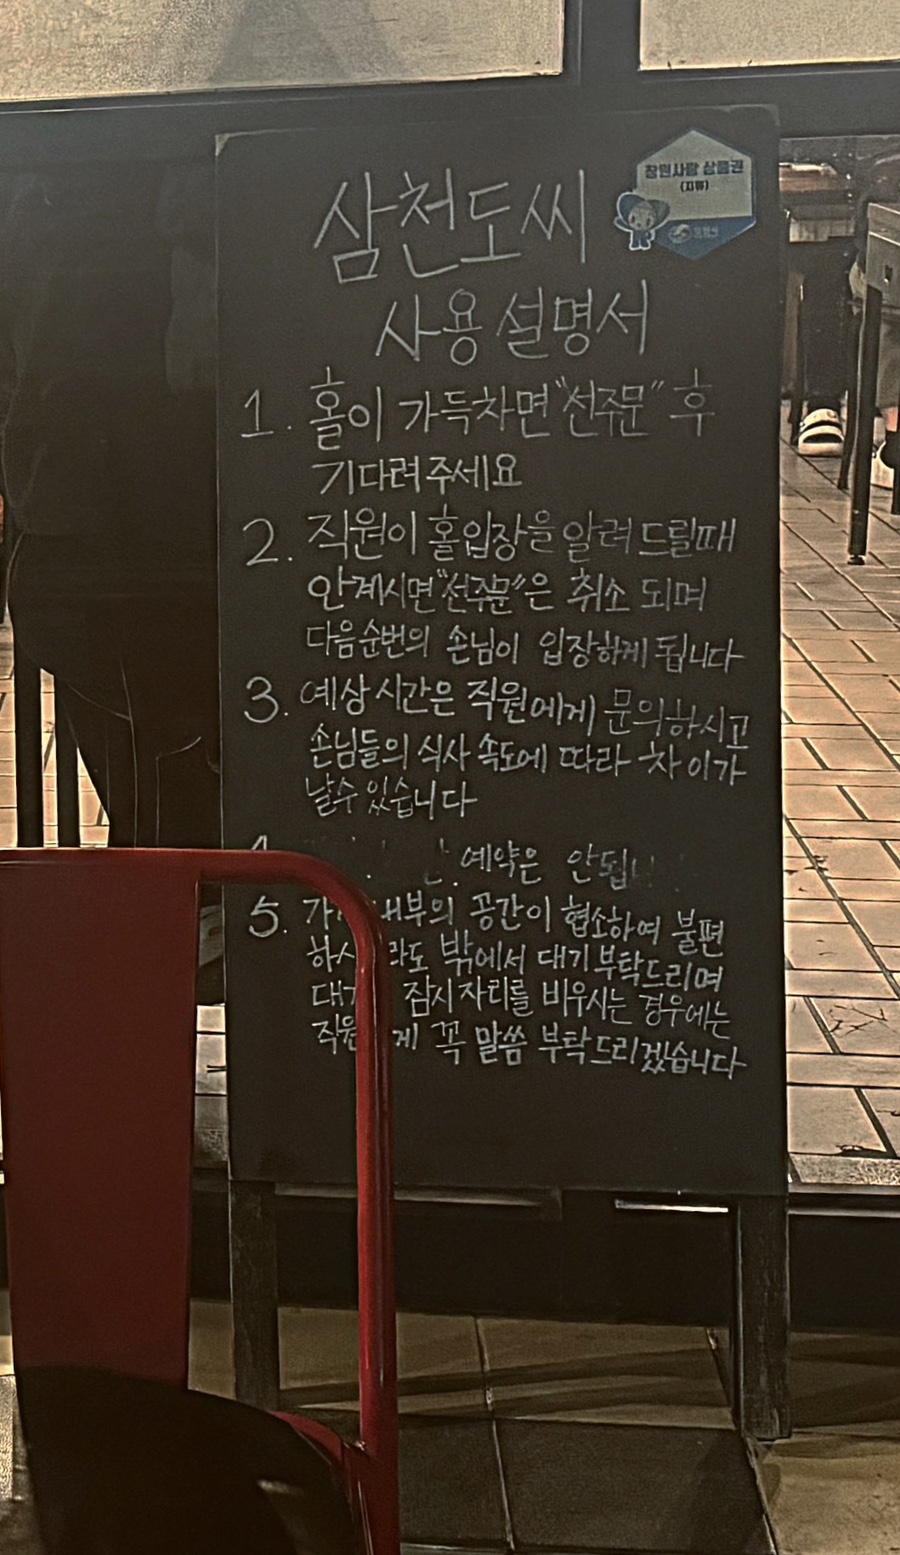 삼천도씨
창원사랑 상품권
(지류)
사용설명서
1. 홀이 가득차면 "선주문" 후
기다려주세요
2. 직원이 홀입장을 알려드릴때
안계시면 "선주문"은 취소 되며
다음순번의 손님이 입장하게 됩니다
3. 예상시간은 직원에게 문의하시고
손님들의 식사 속도에 따라 차이가
날수있습니다
예약은
5. 공간이 협소하여 불편
밖에서 대기부탁드리며
잠시자리를 비우시는 경우에는
꼭 말씀 부탁드리겠습니다